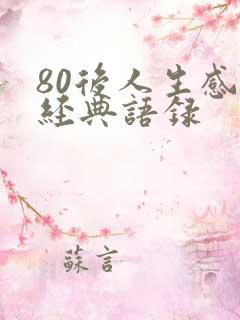 80後人生感
經典語錄
蘇言